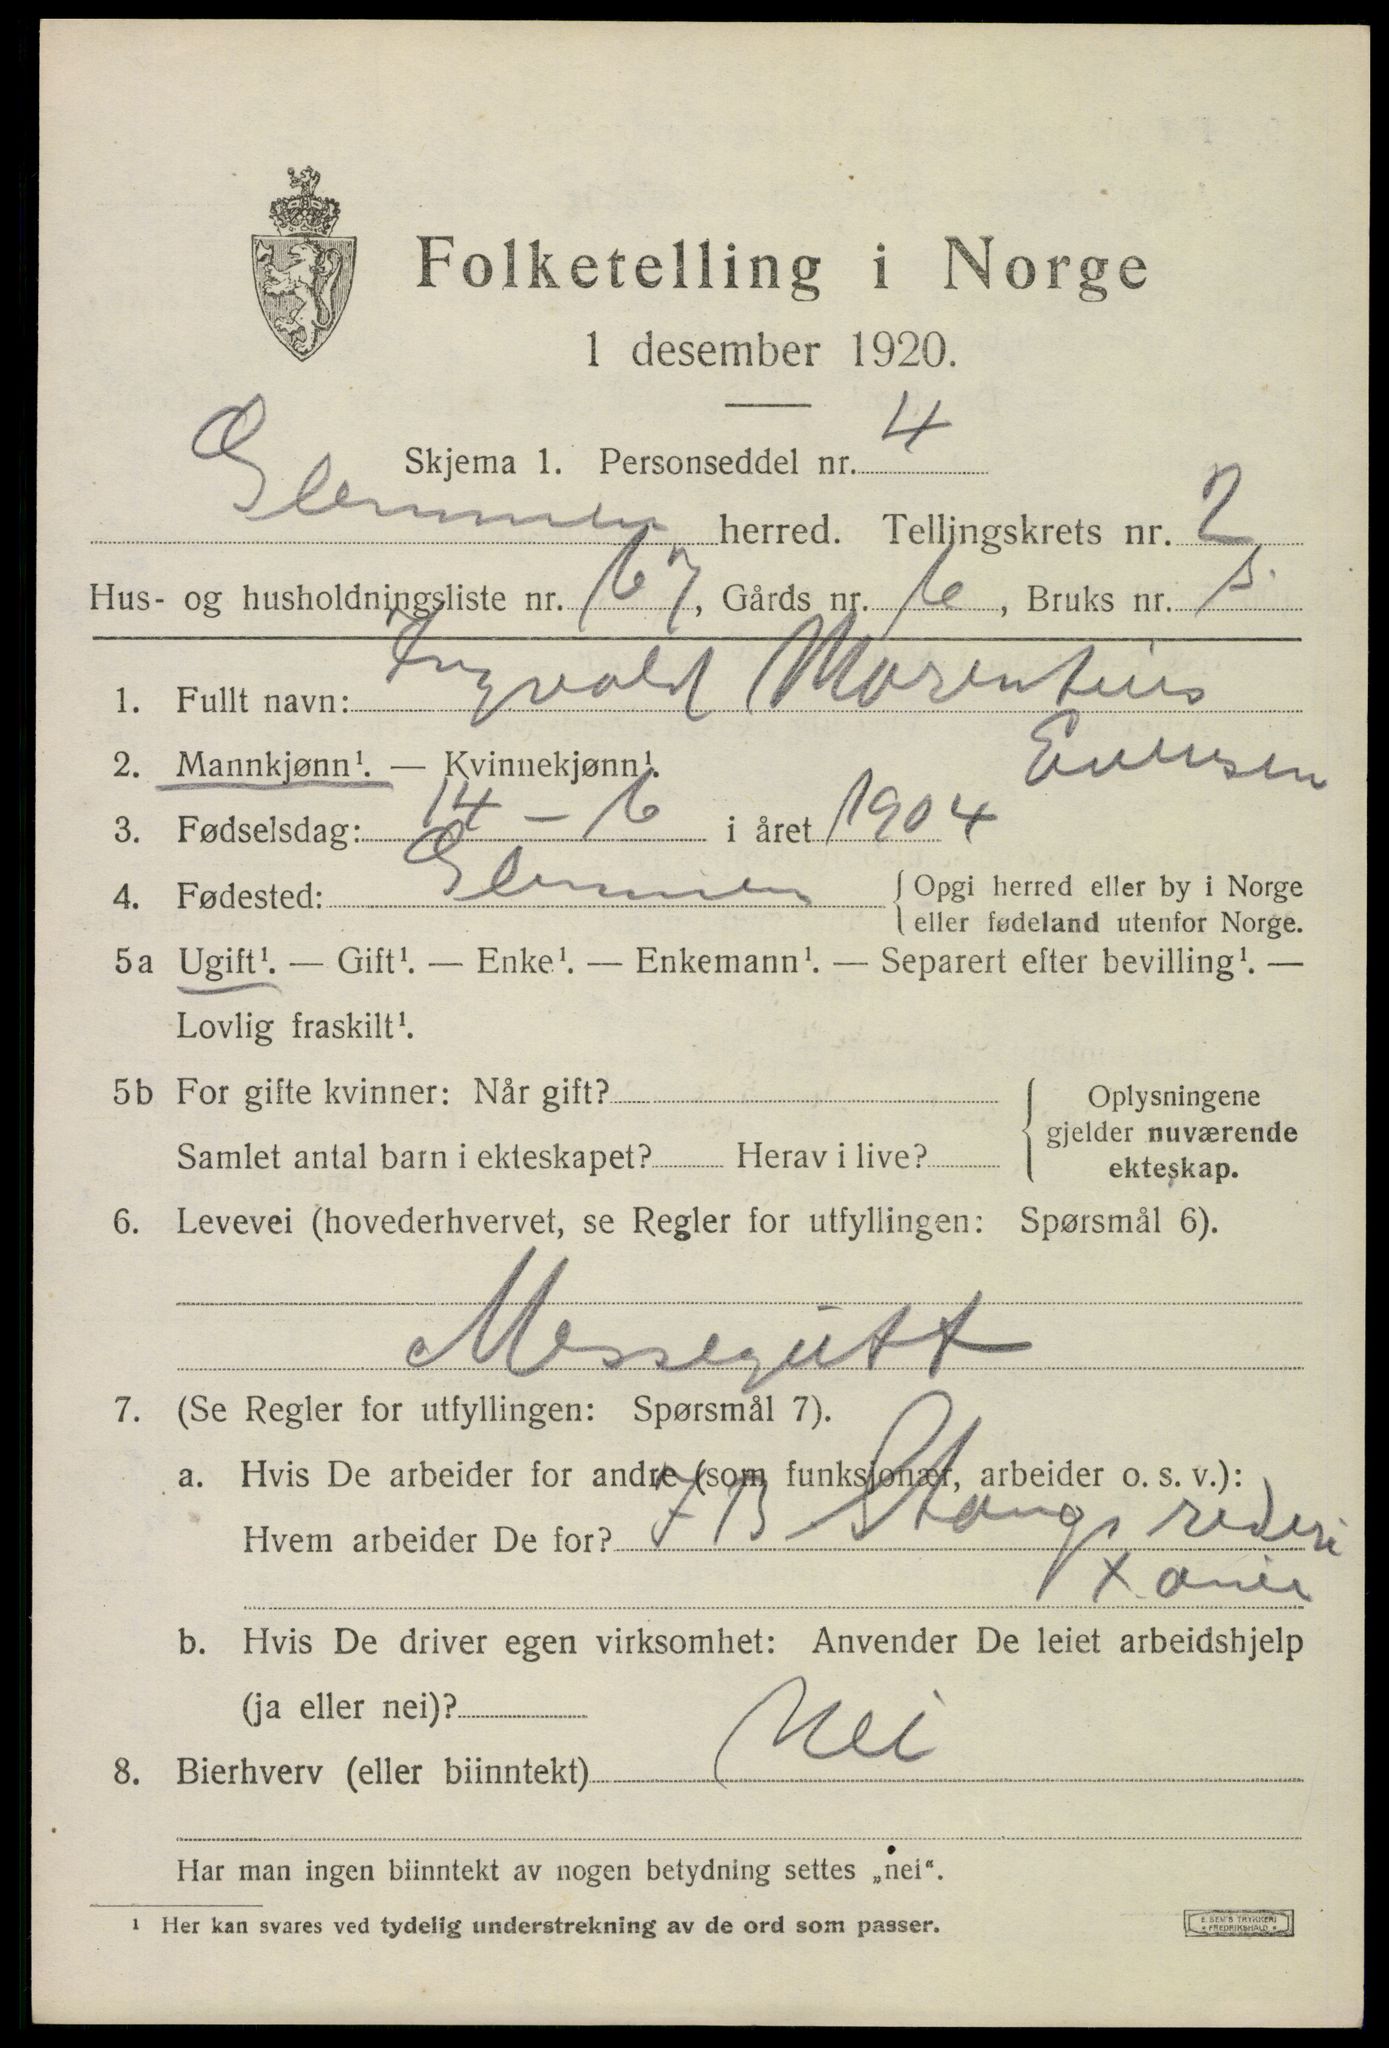 Folketelling i Norge
1 desember 1920.
Skjema 1. Personseddel nr. 4
Glemmen herred. Tellingskrets nr. 2
Hus- og husholdningsliste nr. 67, Gårds nr. 6, Bruks nr.
1. Fullt navn: Ingvald Morentius
Evensen
2. Mannkjønn¹. — Kvinnekjønn¹.
3. Fødselsdag: 14 – 6 i året 1904
4. Fødested: Glemmen { Opgi herred eller by i Norge
eller fødeland utenfor Norge.
5a Ugift¹. — Gift¹. — Enke¹. — Enkemann¹. — Separert efter bevilling¹. —
Lovlig fraskilt¹.
5b For gifte kvinner: Når gift? { Oplysningene
gjelder nuværende
Samlet antal barn i ekteskapet? Herav i live?
ekteskap.
6. Levevei (hovederhvervet, se Regler for utfyllingen: Spørsmål 6).
Messegutt
7. (Se Regler for utfyllingen: Spørsmål 7).
a. Hvis De arbeider for andre (som funksjonær, arbeider o. s. v.):
Hvem arbeider De for? B Stangs rederi
b. Hvis De driver egen virksomhet: Anvender De leiet arbeidshjelp
(ja eller nei)?
8. Bierhverv (eller biinntekt) Nei
Har man ingen biinntekt av nogen betydning settes „nei“.
¹ Her kan svares ved tydelig understrekning av de ord som passer.
E. SEM'S TRYKKERI
FREDRIKSHALD